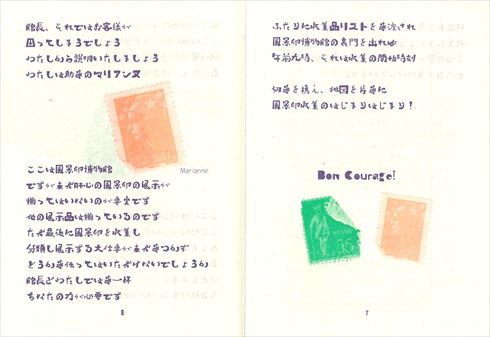 館長、それではお客様が
困ってしまうでしょう
わたしから説明いたしましょう
わたしは助手のマリアンヌ
Marianne
ここは風景印博物館
ですがまだ肝心の風景印の展示が
揃ってはいないのが事実です
他の展示品は揃っているのです
ただ最後に風景印を収集し
分類し展示する大仕事がまだ手つかず
どうか手伝ってはいただけないでしょうか
館長とわたしでは手一杯
あなたの力が必要です
6
ふたりに収集品リストを手渡され
風景印博物館の表門を出れば
午前九時、それは収集の開始時刻
切手を携え、地図を片手に
風景印収集のはじまりはじまり！
Bon Courage!
35
7